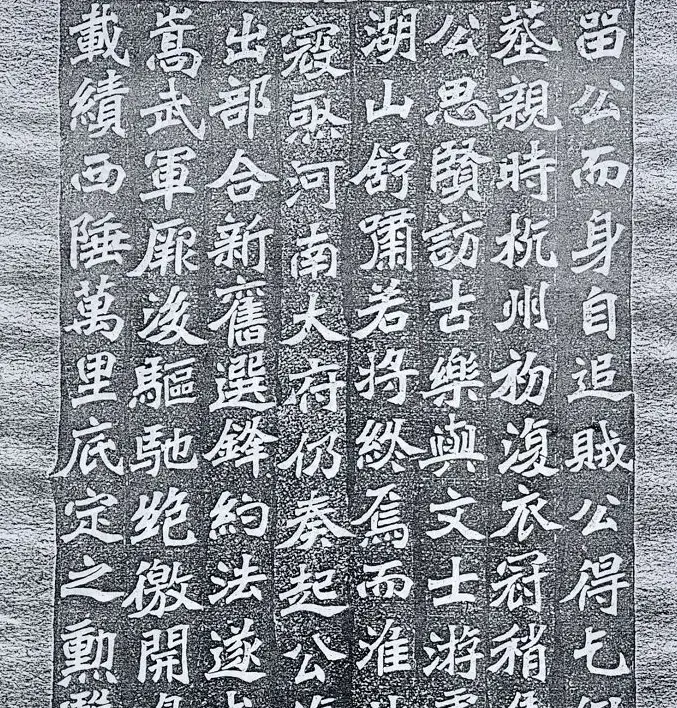 留公而身自追賊公得乞
葬親時杭州初復衣冠稍
公思賢訪古樂與文士游
湖山舒嘯若將終焉而淮
寇亟河南大府仍奏起公
出部合新舊選鋒約法遂
嵩武軍厥後驅馳絶徼開
載績西陲萬里底定之勳